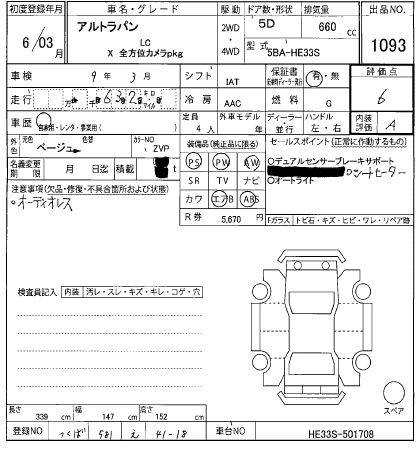 初度登録年月 車名・グレード 駆動 ドア数・形状 排気量 出品NO.
6/03月 アルトラパン 2WD 5D 660 cc 1093
LC
X 全方位カメラpkg 4WD 型式 5BA-HE33S
車検 9年 3月 シフト IAT 保証書 有・無 評価点
走行 冷房 AAC 燃料 G 6
車歴 自家用・レンタ・事業用( ) 定員 4人 外車モデル 年 ディーラー 並行 ハンドル 左・右 内装評価 A
外色 元色 ベージュ 色替 カラーNO ZVP 装備品(純正品に限る) セールスポイント(正常に作動するもの)
名義変更期限 月 日迄 積載 t PS PW AW ○デュアルセンサーブレーキサポート
注意事項(欠品・修復・不具合箇所および状態) SR TV ナビ ○オートライト シートヒーター
○オーディオレス カワ エアB ABS
R券 5,670円 Fガラス トビ石・キズ・ヒビ・ワレ・リペア跡
検査員記入 内装 汚レ・スレ・キズ・キレ・コゲ・穴
スペア
長さ 339 cm 幅 147 cm 高さ 152 cm
登録NO つくば 581 え 41-18 車台NO HE33S-501708